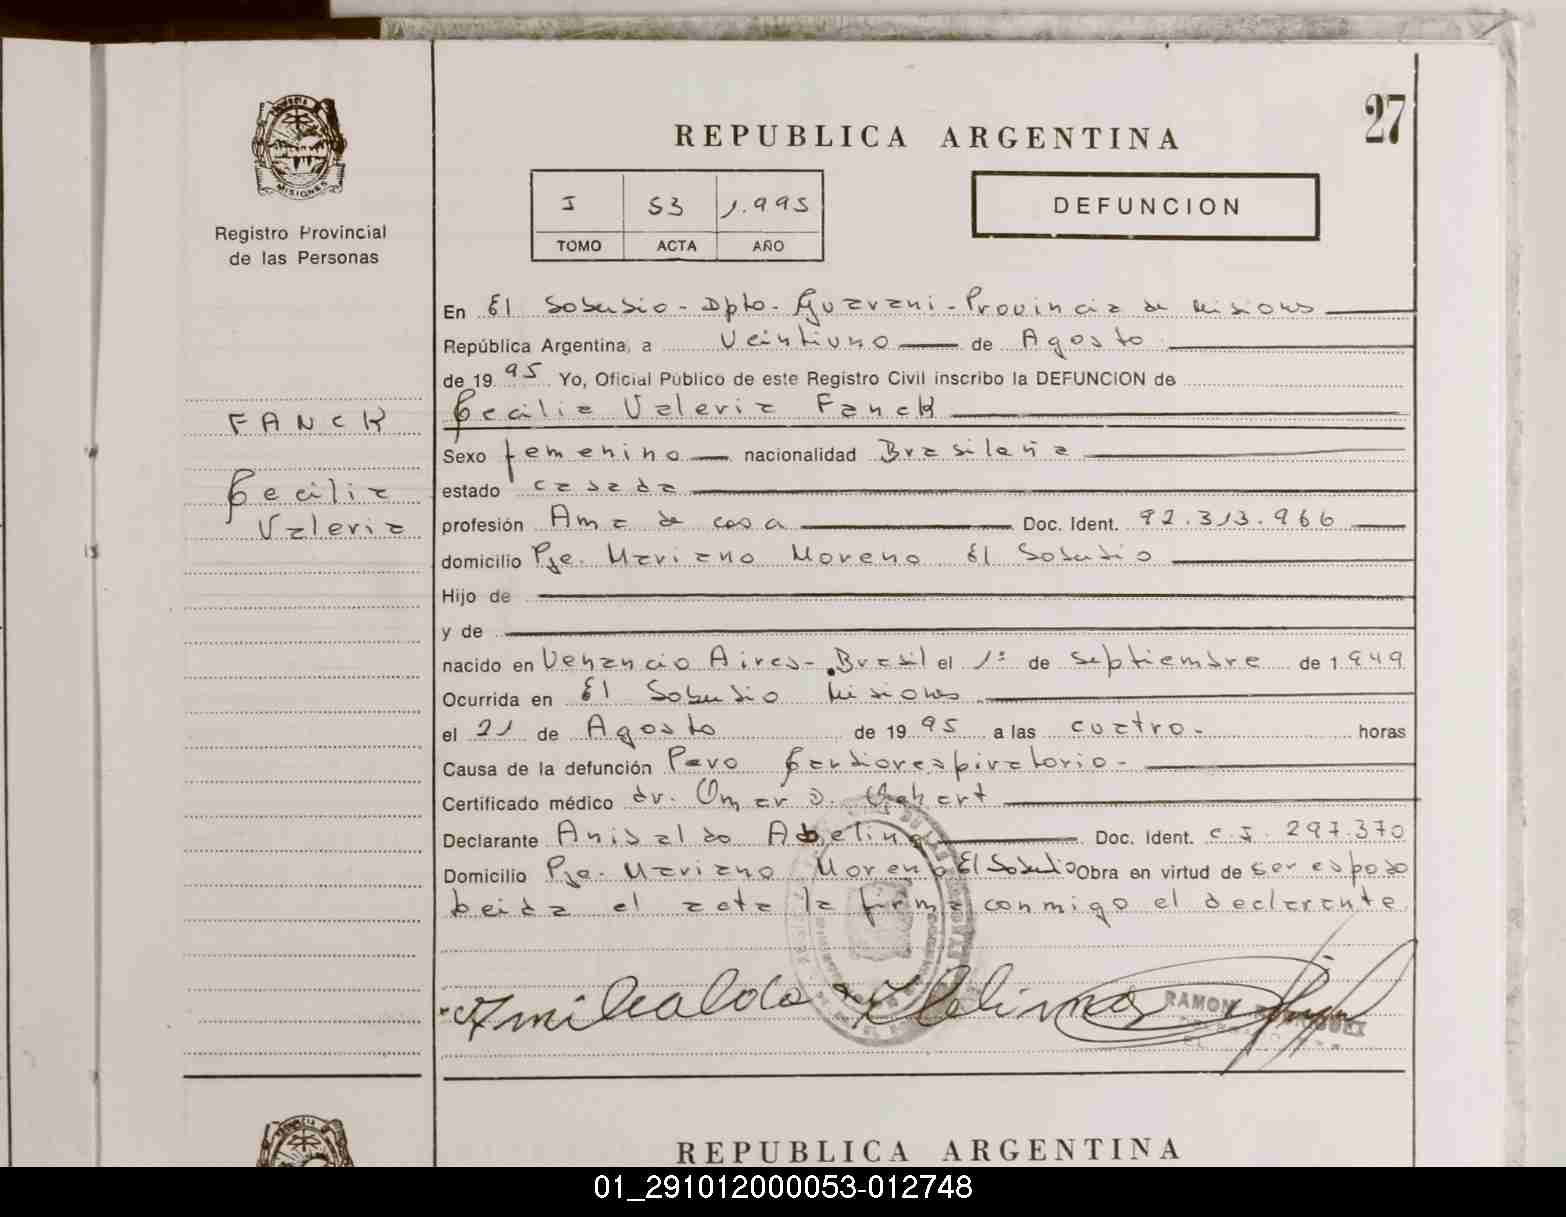 27
REPUBLICA ARGENTINA
MISIONES
Registro Provincial
de las Personas
I 53 1.995
TOMO ACTA AÑO
DEFUNCION
FANCK
Cecilia
Valeria
En El Soberbio - Dpto. Guarani - Provincia de Misiones
República Argentina, a Veintiuno de Agosto
de 19 95 Yo, Oficial Público de este Registro Civil inscribo la DEFUNCION de
Cecilia Valeria Fanck
Sexo femenino nacionalidad Brasileña
estado casada
profesión Ama de casa Doc. Ident. 92.313.966
domicilio Pje. Mariano Moreno El Soberbio
Hijo de
y de
nacido en Venancio Aires - Brasil el 1º de Septiembre de 1.949
Ocurrida en El Soberbio Misiones
el 21 de Agosto de 19 95 a las cuatro. horas
Causa de la defunción Paro Cardiorespiratorio -
Certificado médico dr. Omar D.
Declarante Anibaldo Abelino Doc. Ident. C.I. 297.370
Domicilio Pje. Mariano Moreno El Soberbio Obra en virtud de ser esposo
leida el acta la firma conmigo el declarante
RAMON
REPUBLICA ARGENTINA
01_291012000053-012748